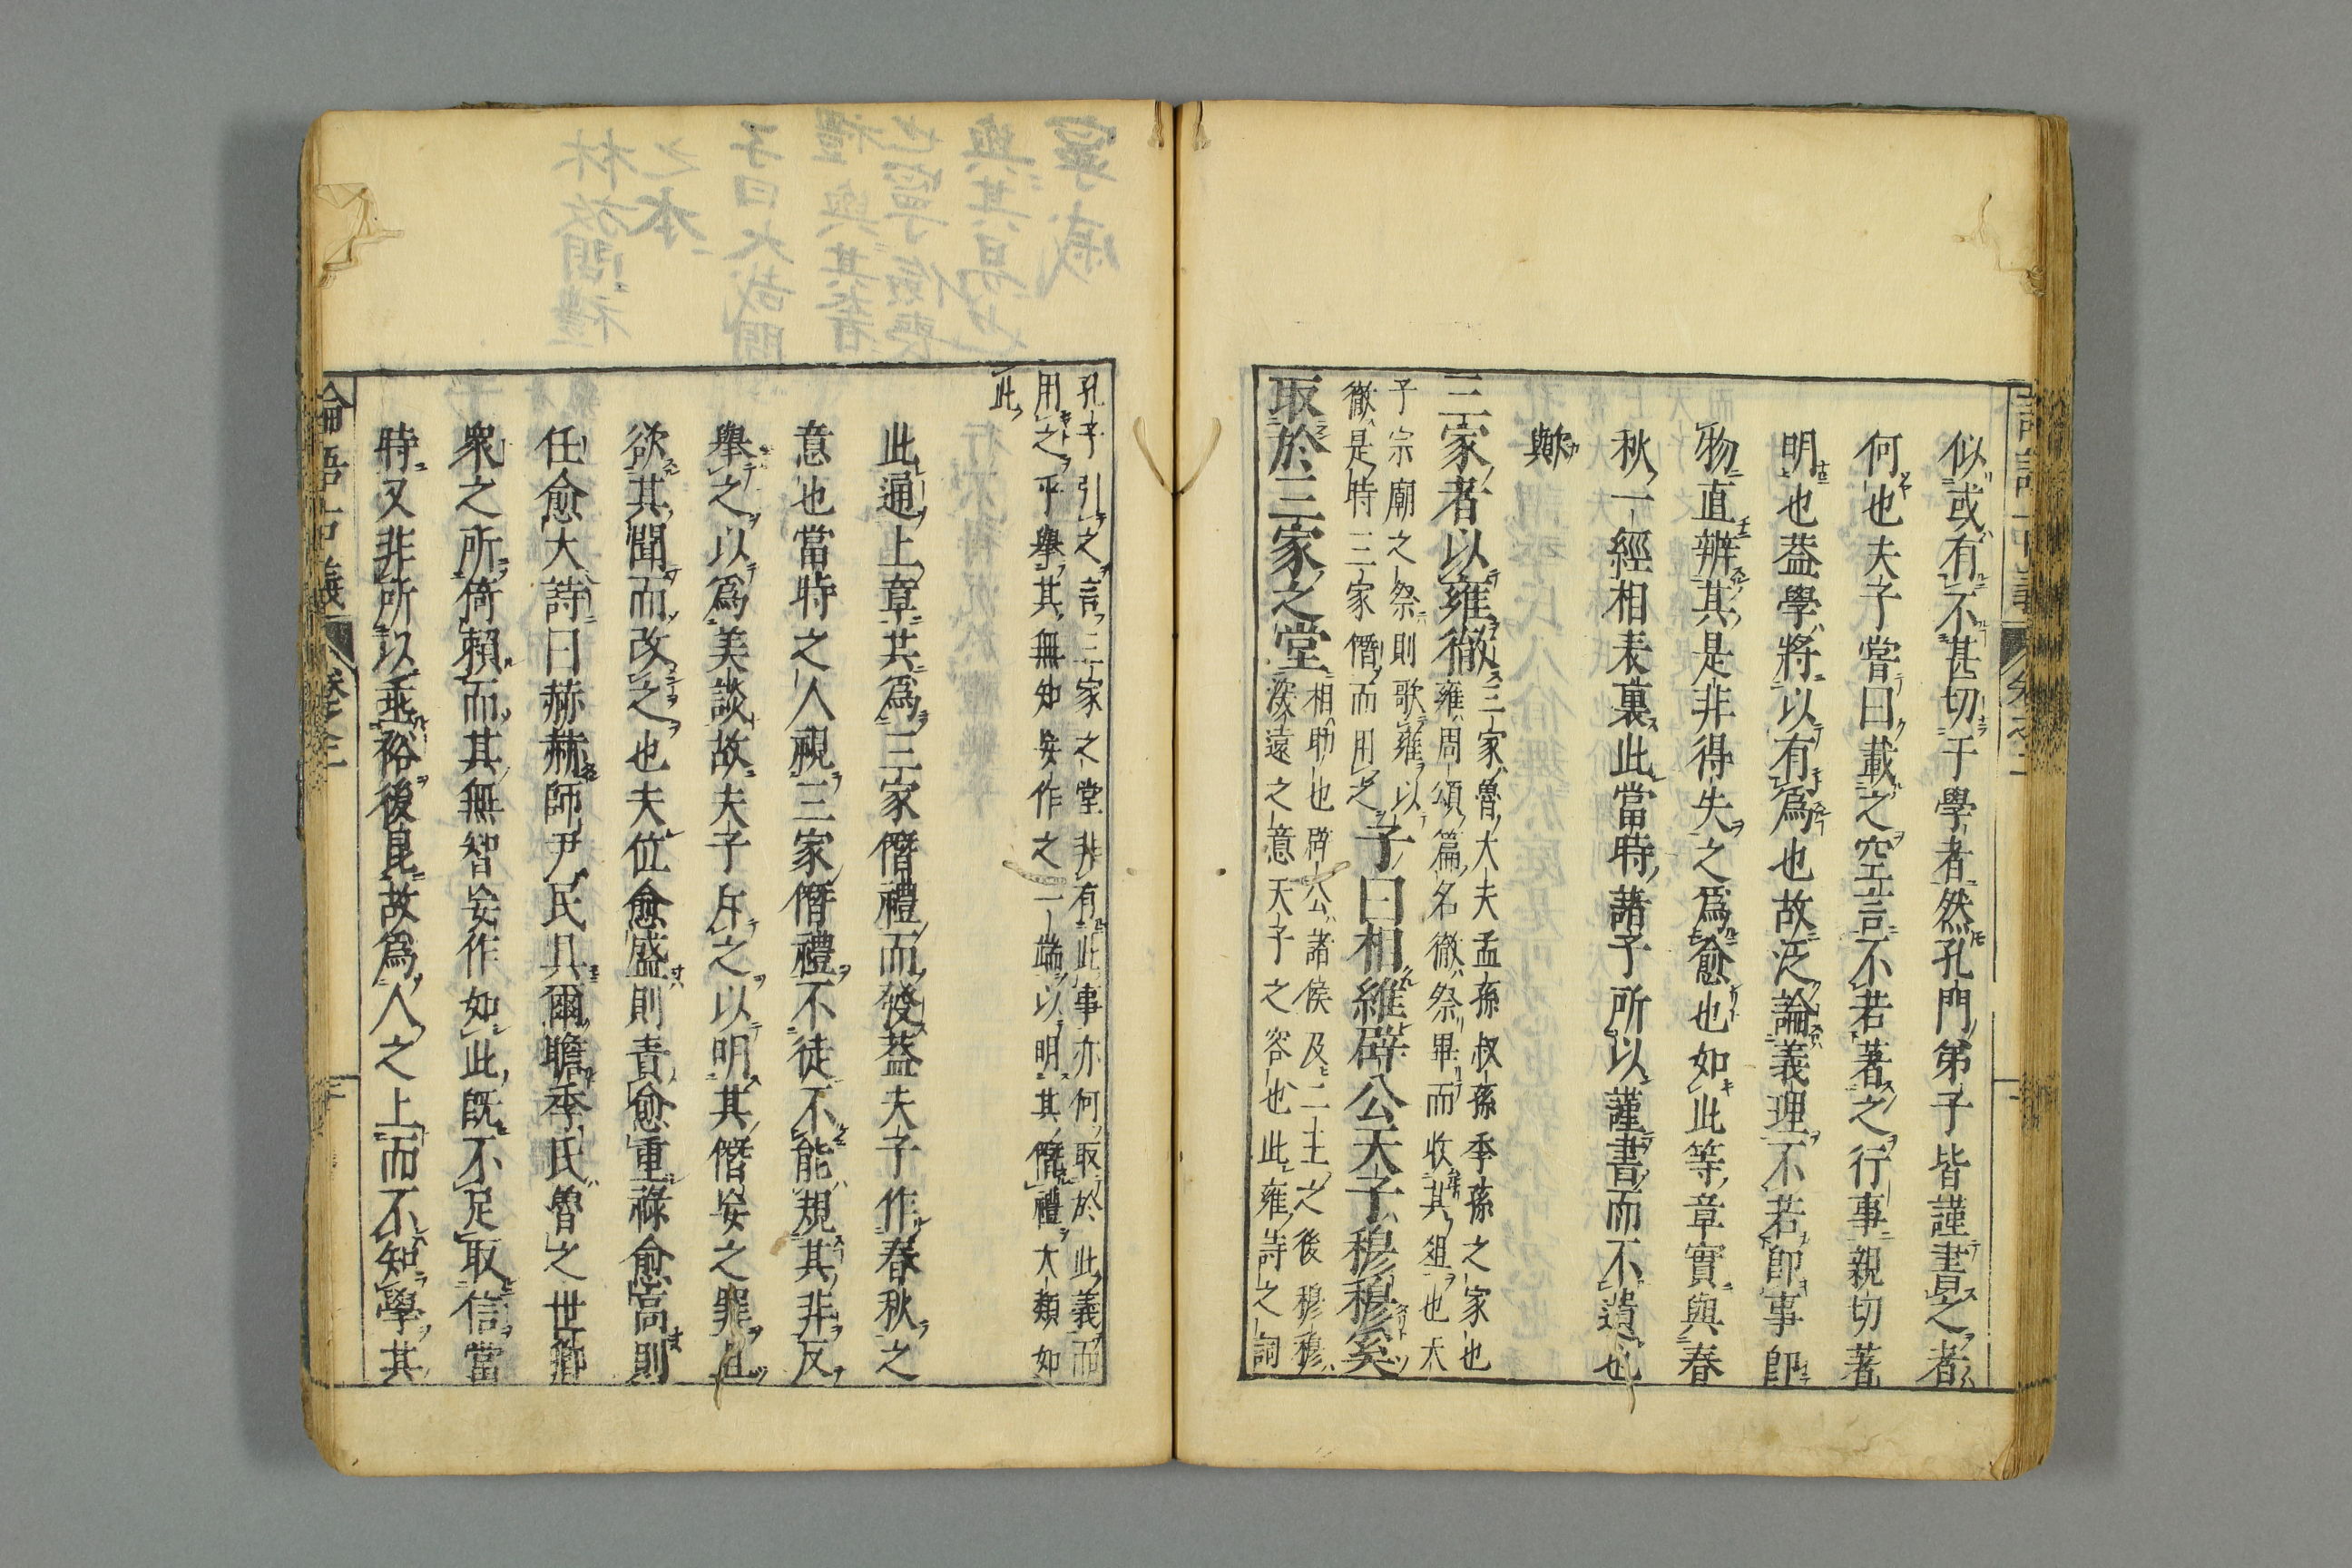 似或有不甚切于學者然孔門弟子皆謹書之者
何也夫子嘗曰載之空言不若著之行事親切著
明也葢學將以有爲也故泛論義理不若即事即
物直辨其是非得失之爲愈也如此等章實與春
秋一經相表裏此當時諸子所以謹書而不遺也
歟
三家者以雍徹
三家魯大夫孟孫叔孫季孫之家也
雍周頌篇名徹祭畢而收其俎也天
子宗廟之祭則歌雍以
徹是時三家僭而用之
子曰相維辟公天子穆穆奚
取於三家之堂
相助也辟公諸侯及二王之後穆穆
深遠之意天子之容也此雍詩之詞
孔子引之言三家之堂非有此事亦何取於此義而
用之乎舉其無知妄作之一端以明其僭禮大類如
此
此通上章其爲三家僭禮而發葢夫子作春秋之
意也當時之人視三家僭禮不徒不能規其非反
舉之以爲美談故夫子斥之以明其僭妄之罪且
欲其聞而改之也夫位愈盛則責愈重祿愈高則
任愈大詩曰赫赫師尹民具爾瞻季氏魯之世卿
衆之所倚賴而其無智妄作如此既不足取信當
時又非所以垂裕後昆故爲人之上而不知學其
論語古義
卷之二
林放問禮
之本
子曰大哉問
禮與其奢
也寧儉喪
與其易也
寧戚